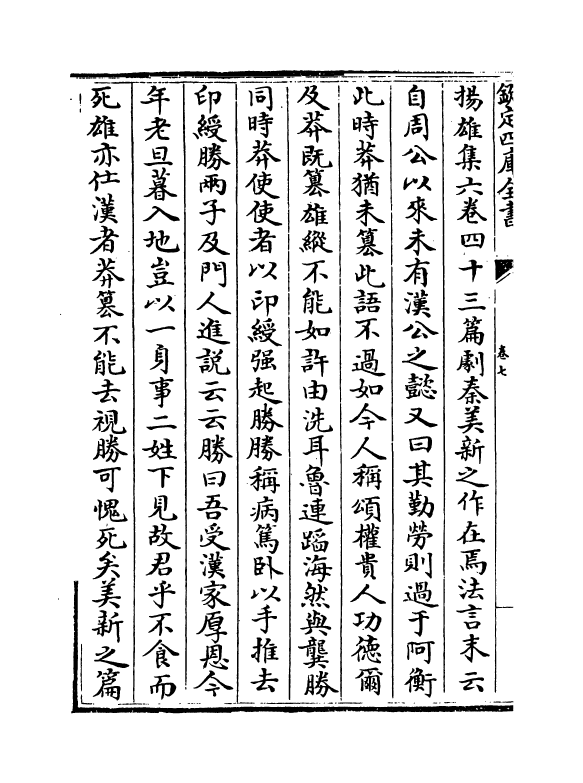 欽定四庫全書
卷七
揚雄集六卷四十三篇劇秦美新之作在焉法言末云
自周公以來未有漢公之懿又曰其勤勞則過于阿衡
此時莽猶未簒此語不過如今人稱頌權貴人功德爾
及莽既簒雄縱不能如許由洗耳魯連蹈海然與龔勝
同時莽使使者以印綬强起勝勝稱病篤卧以手推去
印綬勝兩子及門人進説云云勝曰吾受漢家厚恩今
年老旦暮入地豈以一身事二姓下見故君乎不食而
死雄亦仕漢者莽簒不能去視勝可愧死矣美新之篇